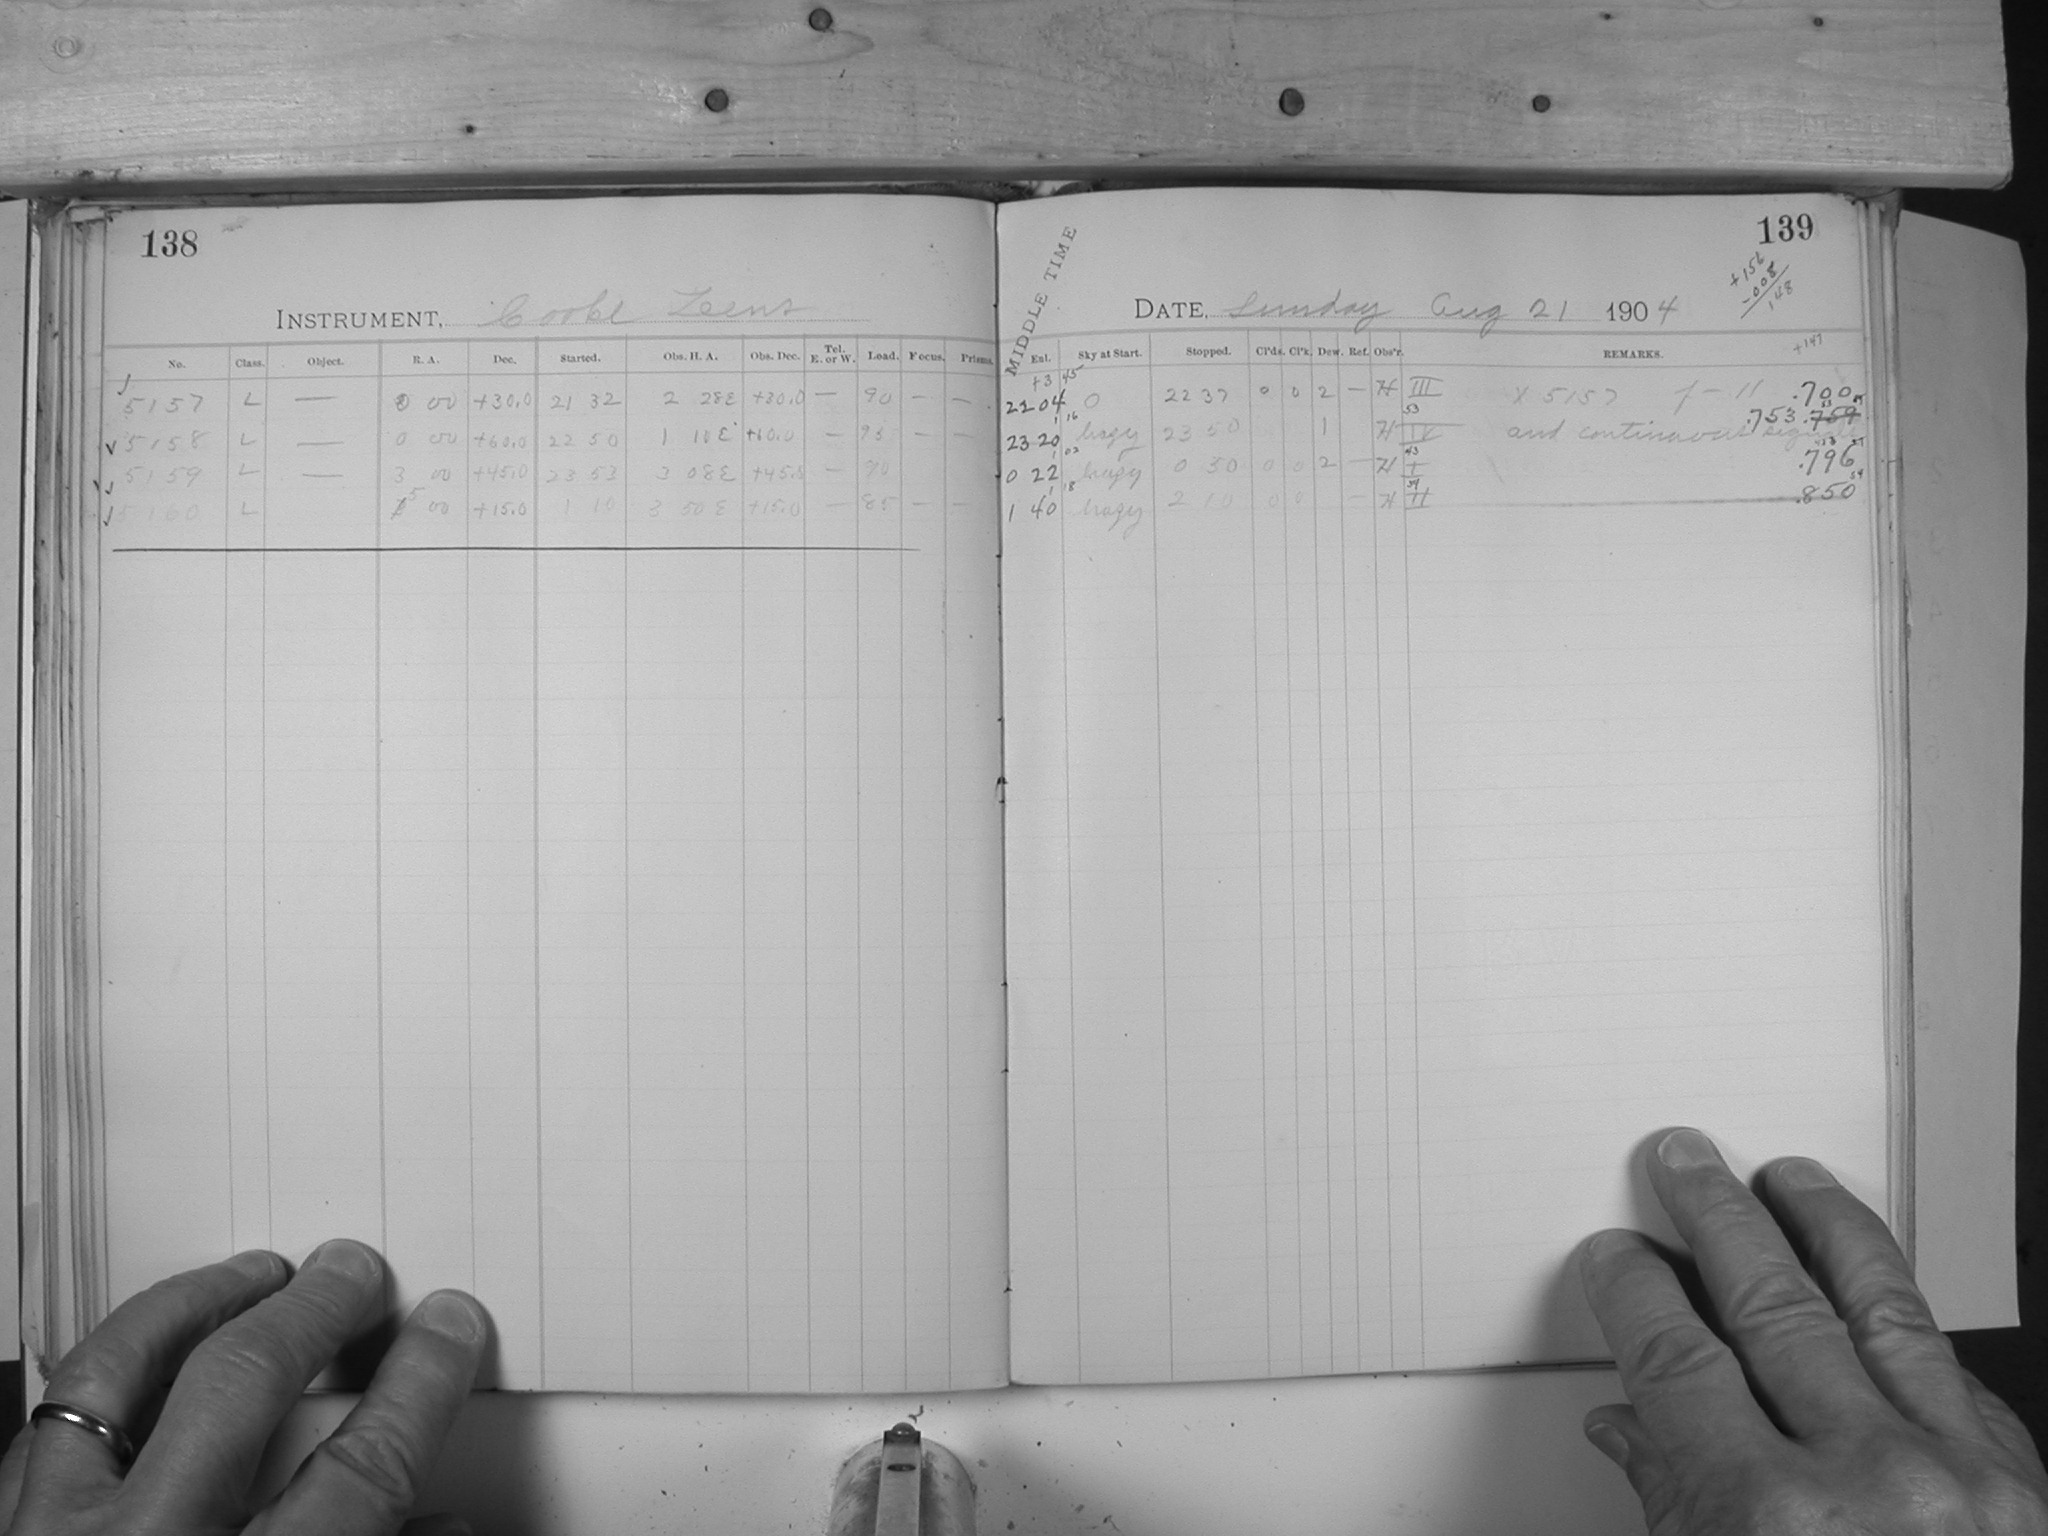 138
INSTRUMENT, Cooke Lens
No. Class. Object. R. A. Dec. Started. Obs. H. A. Obs. Dec. Tel. E. or W. Load. Focus. Prisms.
5157 L — 0 00 +30.0 21 32 2 28E +30.0 — 90 — —
5158 L — 0 00 +60.0 22 50 1 10E +60.0 — 95 — —
5159 L — 3 00 +45.0 23 53 3 08E +45.0 — 90
5160 L 5 00 +15.0 1 10 3 50E +15.0 — 85 — —
139
+156
-008
.148
MIDDLE TIME
DATE, Sunday Aug 21 1904
Enl. Sky at Start. Stopped. Cl'ds. Cl'k. Dew. Ref. Obs'r. REMARKS. +147
+3 45
22 04 0 22 37 0 0 2 — H III X 5157 .700
1 16 53
23 20 hazy 23 50 1 H IV and continuous .753 .759
1 02 43
0 22 hazy 0 50 0 0 2 — H I .796
1 18 54 54
1 40 hazy 2 10 0 0 — H II .850